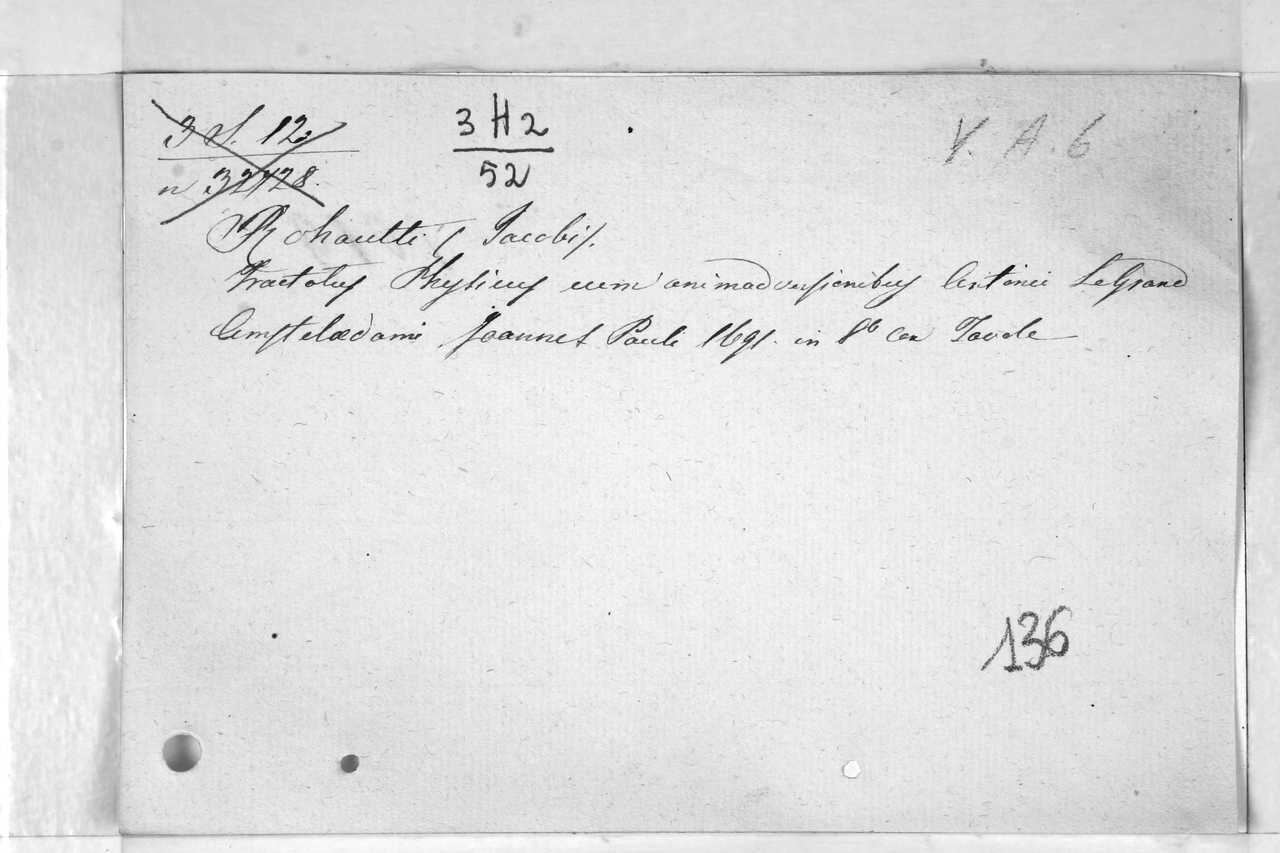 3 H 2
52
V. A. 6
Rohaulti (Jacobi).
Tractatus Physicus cum animadversionibus Antonii LeGrand
Amstelædami Joannes Pauli 1691. in 8º con Tavole
136